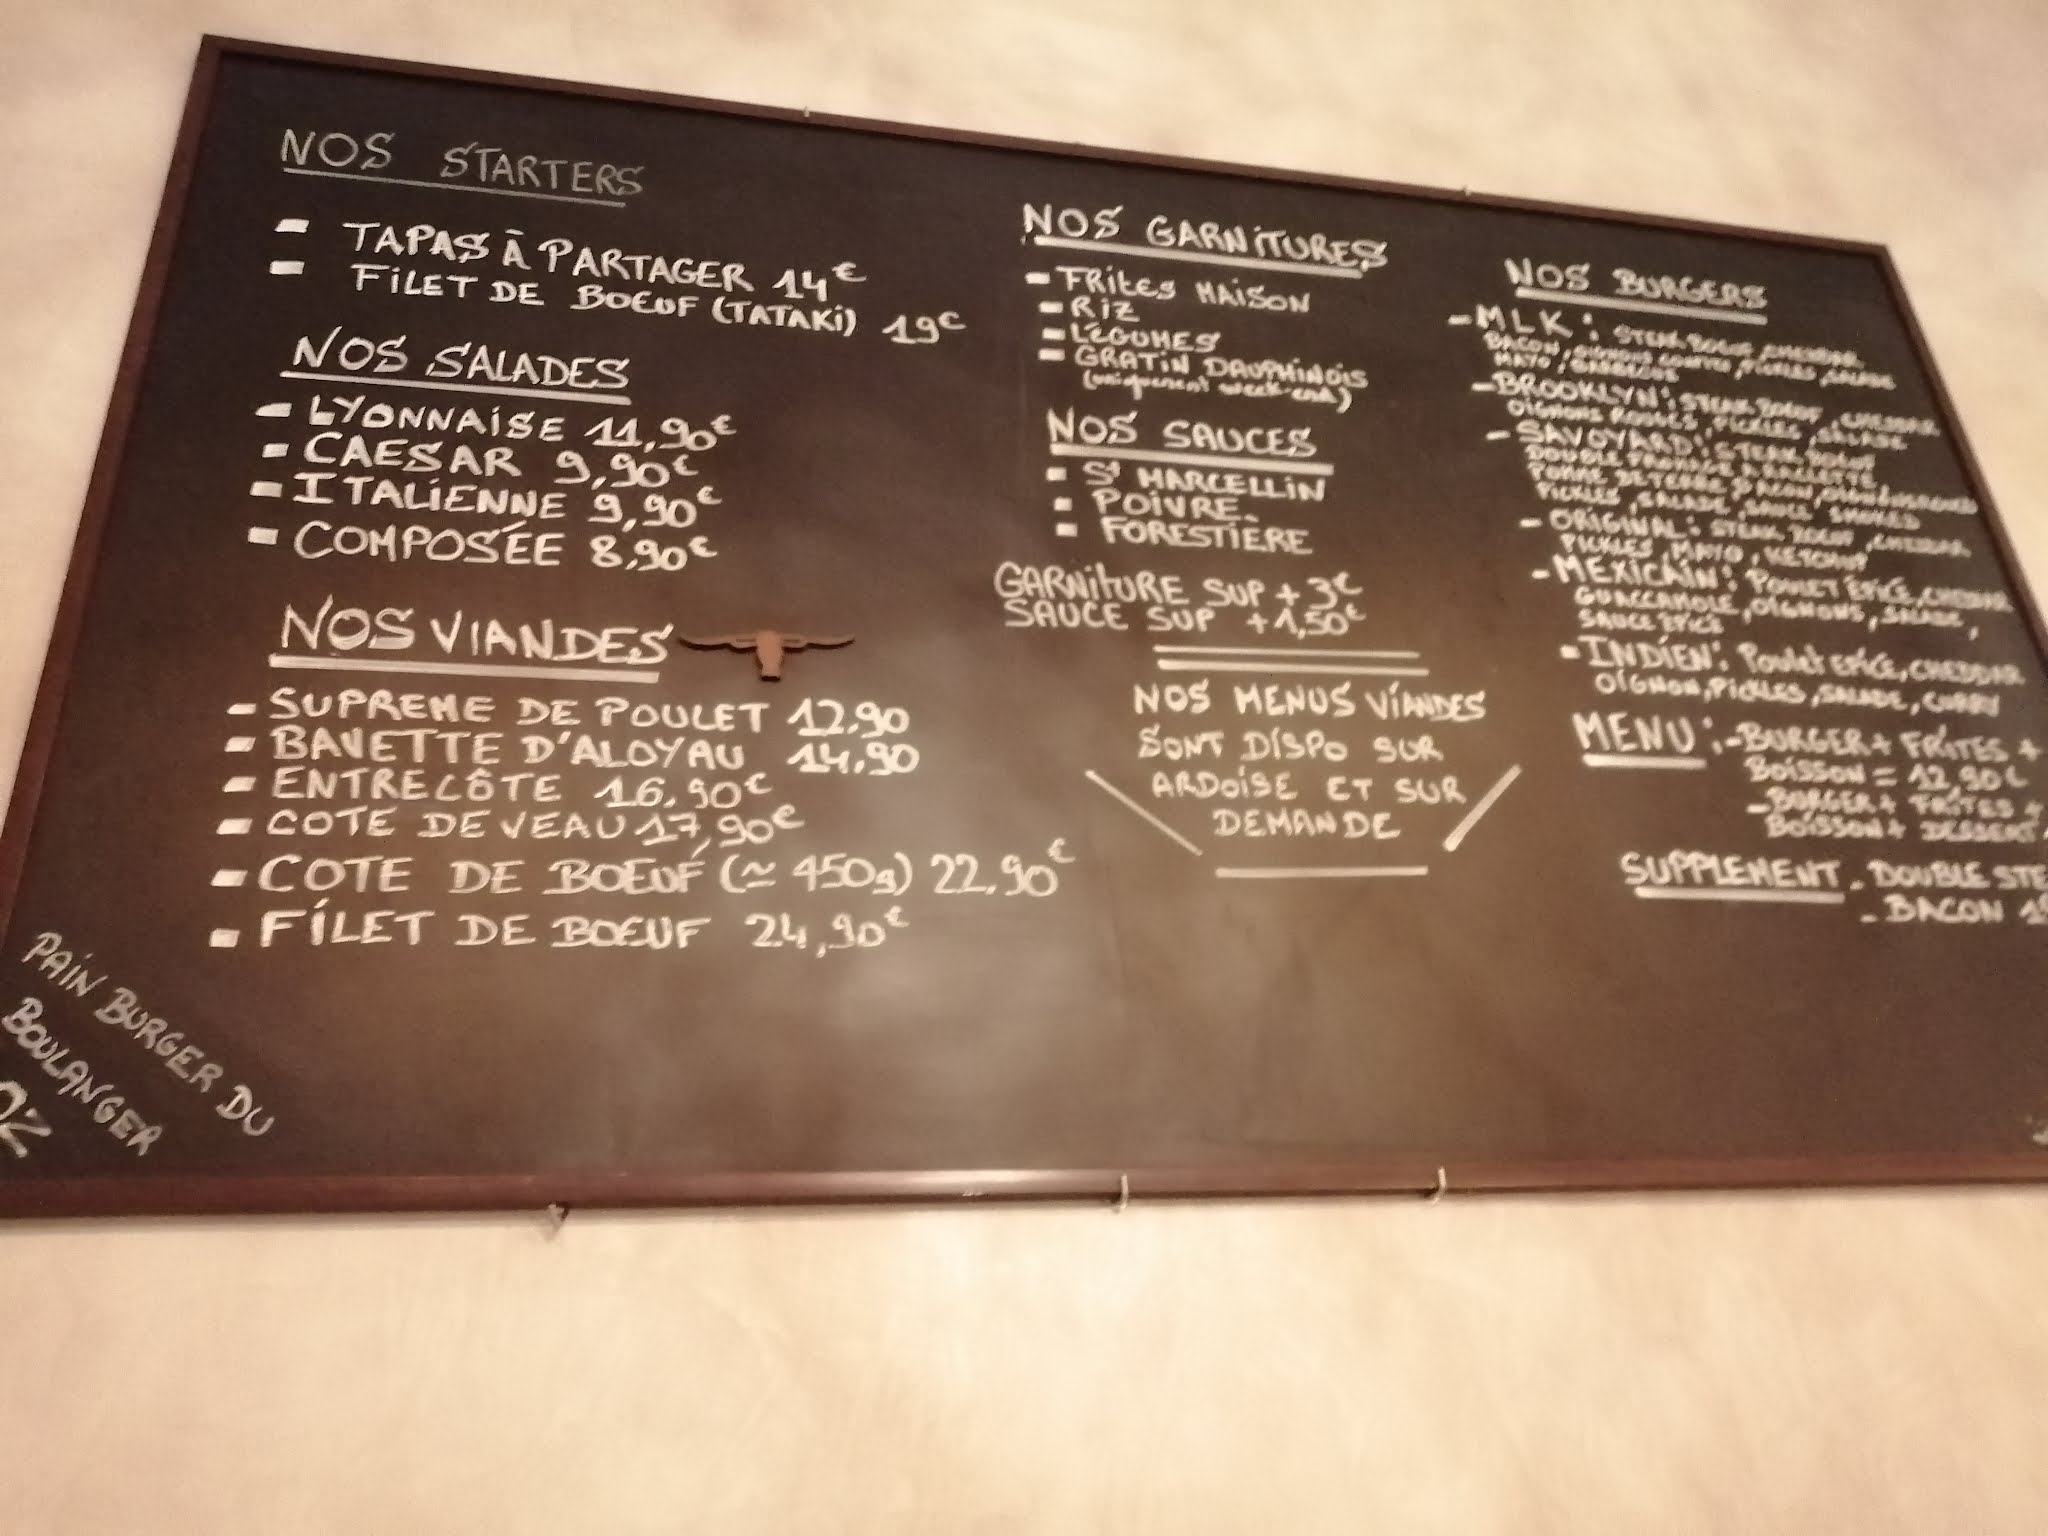 NOS STARTERS
- TAPAS À PARTAGER 14€
- FILET DE BOEUF (TATAKI) 19€
NOS SALADES
- LYONNAISE 11,90€
- CAESAR 9,90€
- ITALIENNE 9,90€
- COMPOSÉE 8,90€
NOS VIANDES
- SUPREME DE POULET 12,90
- BAVETTE D'ALOYAU 14,90
- ENTRECÔTE 16,90€
- COTE DE VEAU 17,90€
- COTE DE BOEUF (≃ 450g) 22,90€
- FILET DE BOEUF 24,90€
PAIN BURGER DU
BOULANGER
NOS GARNITURES
- FRITES MAISON
- RIZ
- LÉGUMES
- GRATIN DAUPHINOIS
(uniquement week-end)
NOS SAUCES
- St MARCELLIN
- POIVRE
- FORESTIÈRE
GARNITURE SUP + 3€
SAUCE SUP + 1,50€
NOS MENUS VIANDES
SONT DISPO SUR
ARDOISE ET SUR
DEMANDE
NOS BURGERS
- MLK : STEAK BOEUF, CHEDDAR
BACON, OIGNONS CONFITS, PICKLES, SALADE
MAYO, BARBECUE
- BROOKLYN : STEAK BOEUF, CHEDDAR
OIGNONS ROUGES, PICKLES, SALADE
- SAVOYARD : STEAK BOEUF
DOUBLE FROMAGE A RACLETTE
POMME DE TERRE, BACON,
PICKLES, SALADE, SAUCE SMOKED
- ORIGINAL : STEAK BOEUF, CHEDDAR
PICKLES, MAYO, KETCHUP
- MEXICAIN : POULET EPICE, CHEDDAR
GUACCAMOLE, OIGNONS, SALADE,
SAUCE EPICE
- INDIEN : POULET EPICE, CHEDDAR
OIGNON, PICKLES, SALADE, CURRY
MENU : - BURGER + FRITES +
BOISSON = 12,90€
- BURGER + FRITES +
BOISSON + DESSERT
SUPPLEMENT - DOUBLE STE
- BACON 1